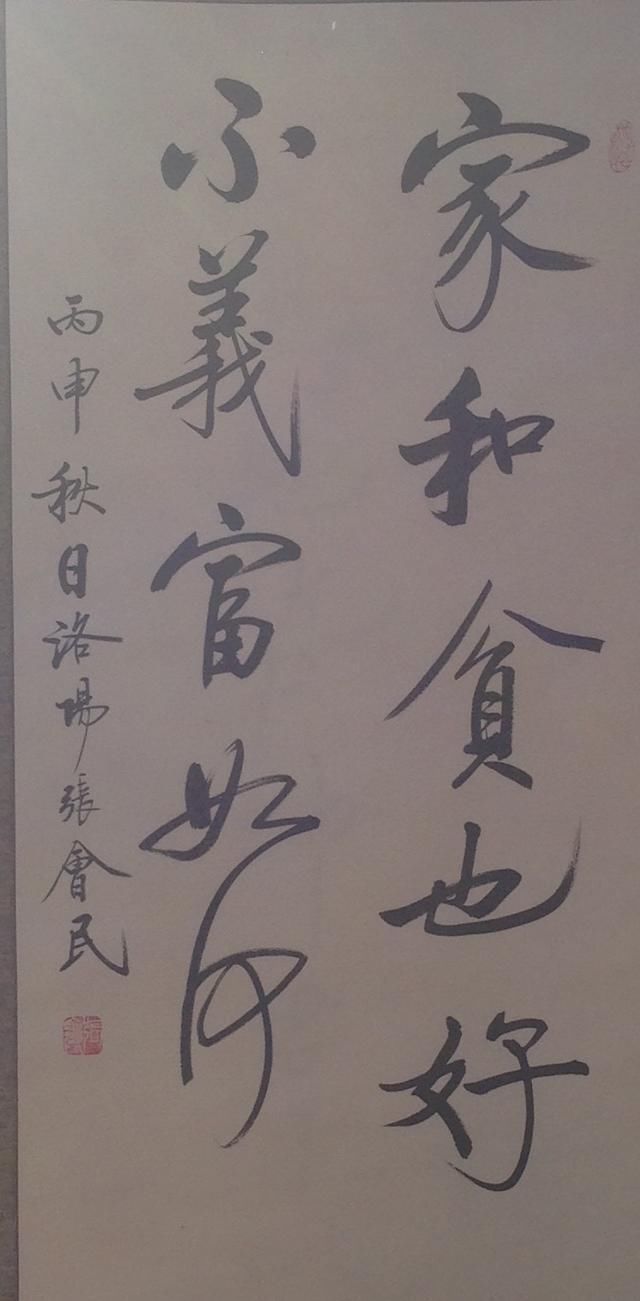 家和貧也好
不義富如何
丙申秋日洛陽張會民